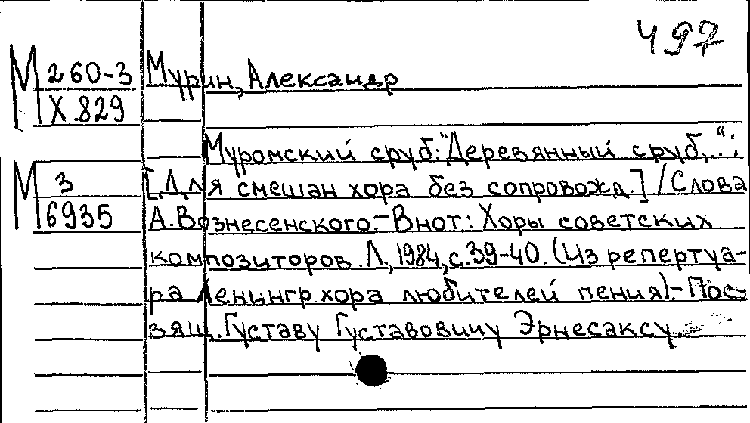 497
М 260-3 Мурин, Александр
Х 829
Муромский сруб: "Деревянный сруб,..":
М 3 [Для смешан хора без сопровожд.] / Слова
6935 А. Вознесенского.- В нот: Хоры советских
композиторов. Л., 1984, с. 39-40. (Из репертуа-
ра Ленингр. хора любителей пения).- Пос-
вящ. Густаву Густавовичу Эрнесаксу.